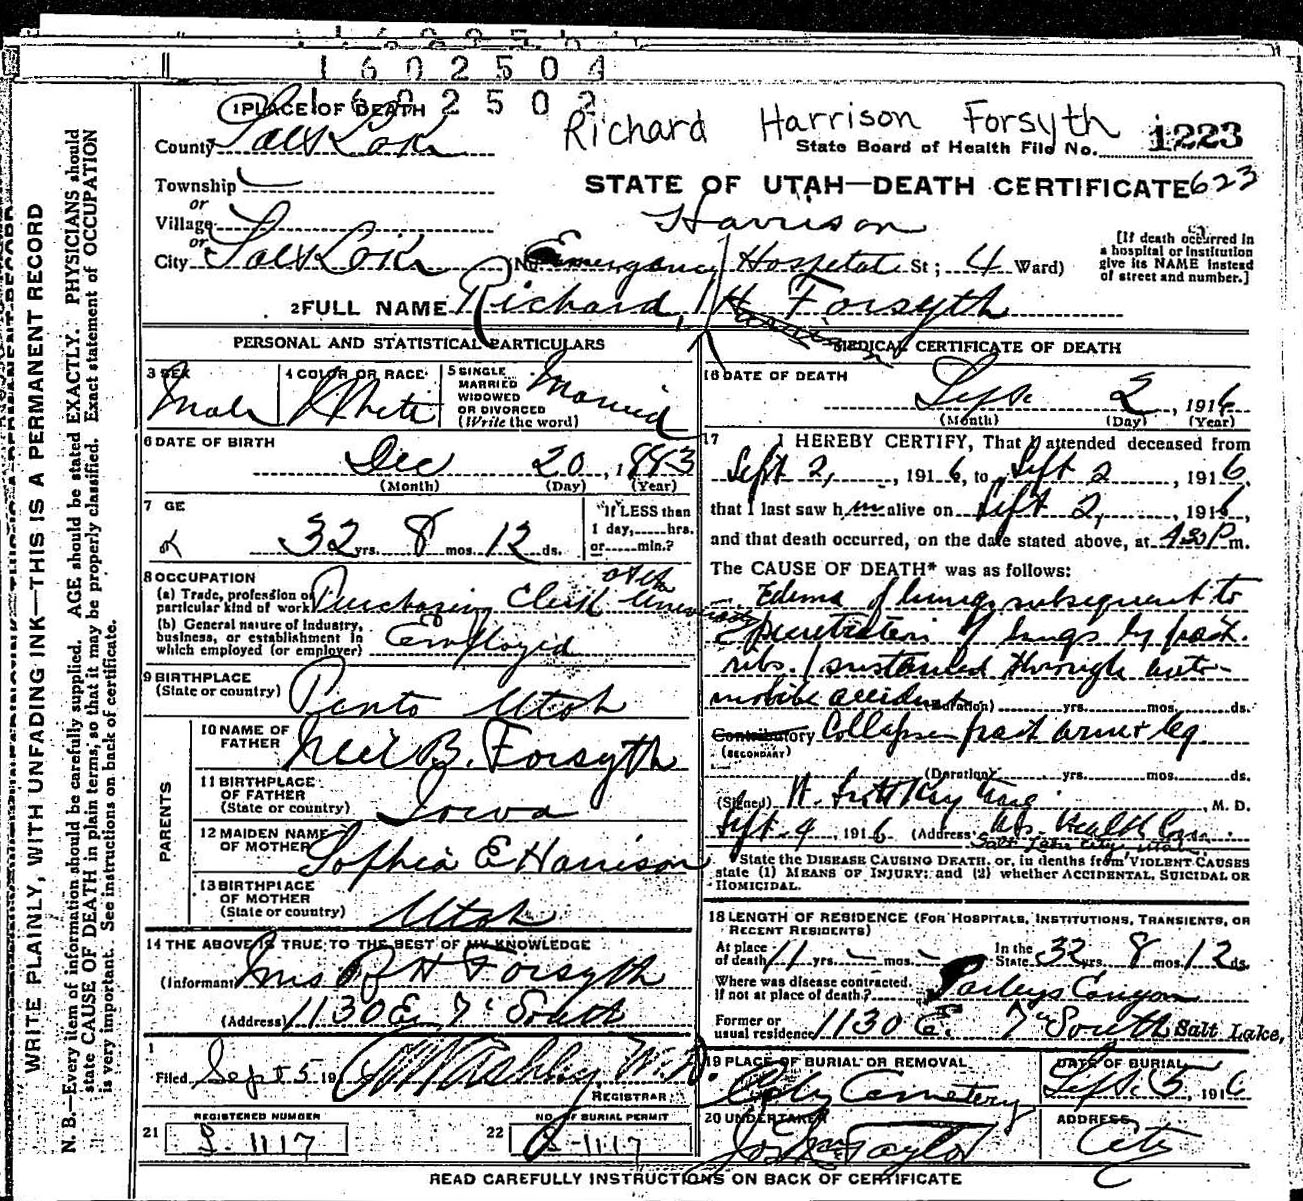 1602504
1602502
1 PLACE OF DEATH
Richard Harrison Forsyth
County Salt Lake
State Board of Health File No. 1223
Township
or
STATE OF UTAH—DEATH CERTIFICATE 623
Village
or
Harrison
City Salt Lake (No. Emergency Hospital St; 4 Ward)
[If death occurred in
a hospital or institution
give its NAME instead
of street and number.]
2 FULL NAME Richard H Forsyth
PERSONAL AND STATISTICAL PARTICULARS
3 SEX Male
4 COLOR OR RACE White
5 SINGLE
MARRIED
WIDOWED
OR DIVORCED
(Write the word)
Married
6 DATE OF BIRTH
Dec 20, 1883
(Month) (Day) (Year)
7 GE
32 yrs. 8 mos. 12 ds.
If LESS than
1 day, hrs.
or min.?
8 OCCUPATION
(a) Trade, profession or
particular kind of work Purchasing Clerk
(b) General nature of industry,
business, or establishment in
which employed (or employer) Employed
9 BIRTHPLACE
(State or country) Pinto Utah
PARENTS
10 NAME OF
FATHER Neil B. Forsyth
11 BIRTHPLACE
OF FATHER
(State or country) Iowa
12 MAIDEN NAME
OF MOTHER Sophia E Harrison
13 BIRTHPLACE
OF MOTHER
(State or country) Utah
14 THE ABOVE IS TRUE TO THE BEST OF MY KNOWLEDGE
(Informant) Mrs R H Forsyth
(Address) 1130 E 7" South
Filed Sept 5 19
REGISTRAR
REGISTERED NUMBER
NO. OF BURIAL PERMIT
21 S. 1117
22 S-1117
MEDICAL CERTIFICATE OF DEATH
16 DATE OF DEATH
Sept. 2, 1916
(Month) (Day) (Year)
17 I HEREBY CERTIFY, That I attended deceased from
Sept 2, 1916, to Sept 2, 1916.
that I last saw him alive on Sept 2, 1916,
and that death occurred, on the date stated above, at 4 30 P m.
The CAUSE OF DEATH* was as follows:
Edema of lungs subsequent to
penetration of lungs by fract.
ribs. sustained through auto-
mobile accident (Duration) yrs. mos. ds.
Contributory Collapse fract arm & leg
(SECONDARY)
(Duration) yrs. mos. ds.
(Signed) M. D.
Sept. 4, 1916 (Address)
Salt Lake City Utah
*State the DISEASE CAUSING DEATH, or, in deaths from VIOLENT CAUSES
state (1) MEANS OF INJURY; and (2) whether ACCIDENTAL, SUICIDAL OR
HOMICIDAL.
18 LENGTH OF RESIDENCE (FOR HOSPITALS, INSTITUTIONS, TRANSIENTS, OR
RECENT RESIDENTS)
At place
of death 11 yrs. — mos. —
In the
State 32 yrs. 8 mos. 12 ds.
Where was disease contracted,
if not at place of death? Parleys Canyon
Former or
usual residence 1130 E. 7" South Salt Lake,
19 PLACE OF BURIAL OR REMOVAL
City Cemetery
DATE OF BURIAL
Sept. 5, 1916
20 UNDERTAKER
Taylor
ADDRESS
City
READ CAREFULLY INSTRUCTIONS ON BACK OF CERTIFICATE
WRITE PLAINLY, WITH UNFADING INK—THIS IS A PERMANENT RECORD
N. B.—Every item of information should be carefully supplied. AGE should be stated EXACTLY. PHYSICIANS should
state CAUSE OF DEATH in plain terms, so that it may be properly classified. Exact statement of OCCUPATION
is very important. See instructions on back of certificate.